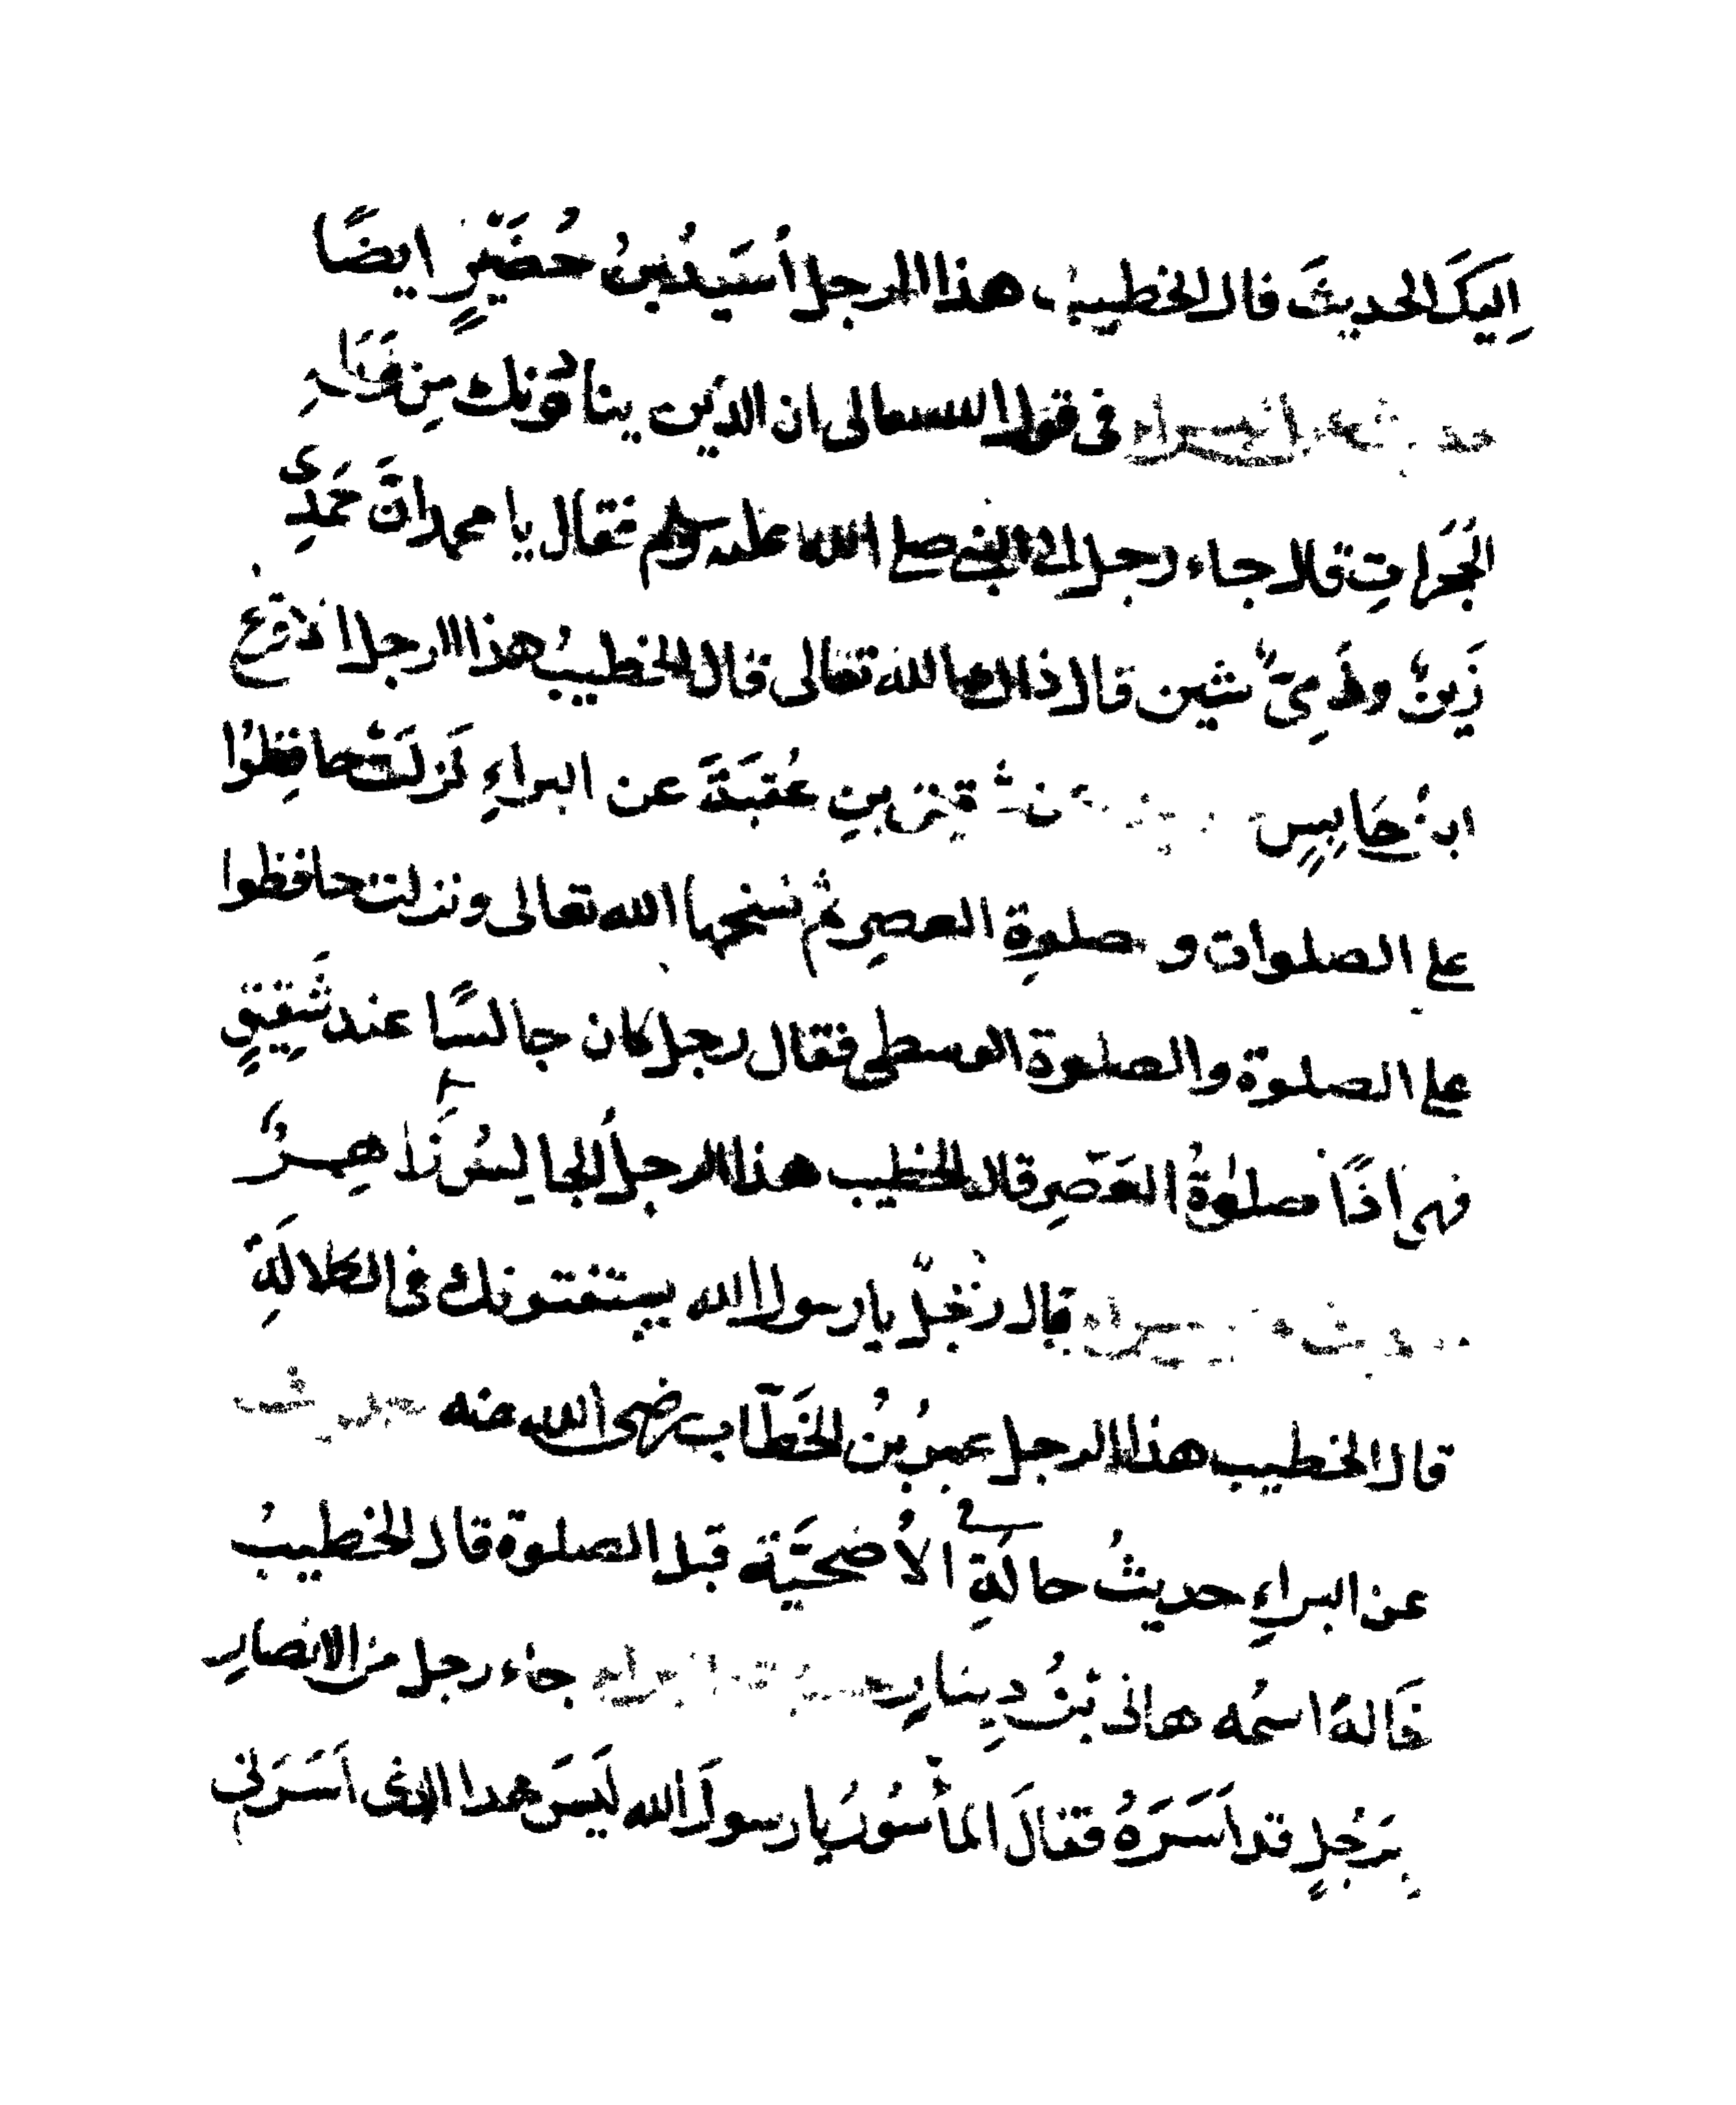 اِلَيكَ الحديثَ قال الخطيبُ هذا الرجل أُسَيدُ بنُ حُضَيْرٍ ايضًا
حديث عن البراء فى قول الله تعالى ان الذين ينادونك مِن وَرَاءِ
الحُجُراتِ قال جاء رجل الى النبى صلى الله عليه وسلم فقال يا محمد انَّ حَمْدِى
زَينٌ وذَمِّىَّ شين قال ذاك الله تعالى قال الخطيبُ هذا الرجل الاقرع
ابنُ حَابِسٍ شقيق بنِ عُقبَةَ عن البراءِ نَزلَتْ حافِظُوا
على الصلوات وصلوةِ العصرِ ثم نسخها الله تعالى ونزلت حافظوا
على الصلوة والصلوة الوسطى فقال رجل كان جالسًا عند شَقِيقٍ
فهى اذًا صلوٰةُ العَصْرِ قال الخطيب هذا الرجلُ الجالِسُ زَاهِرٌ
حديث البراء قال رَجُلٌ يا رسول الله يستفتونك فى الكلالَةِ
قال الخطيب هذا الرجل عمرُ بنُ الخَطّاب رضى الله عنه حديث
عن البراءِ حديثُ خالَهِ فى الأُضحيَّة قبل الصلوة قال الخطيبُ
خَالهُ اسمُه هانى بْنُ دِينارٍ حديث البراء جاء رجل من الانصارِ
بِرَجُلٍ قد اَسَرَهُ فقالَ المأسُورُ يا رسولَ الله لَيسَ هذا الذى اَسَرَنِى